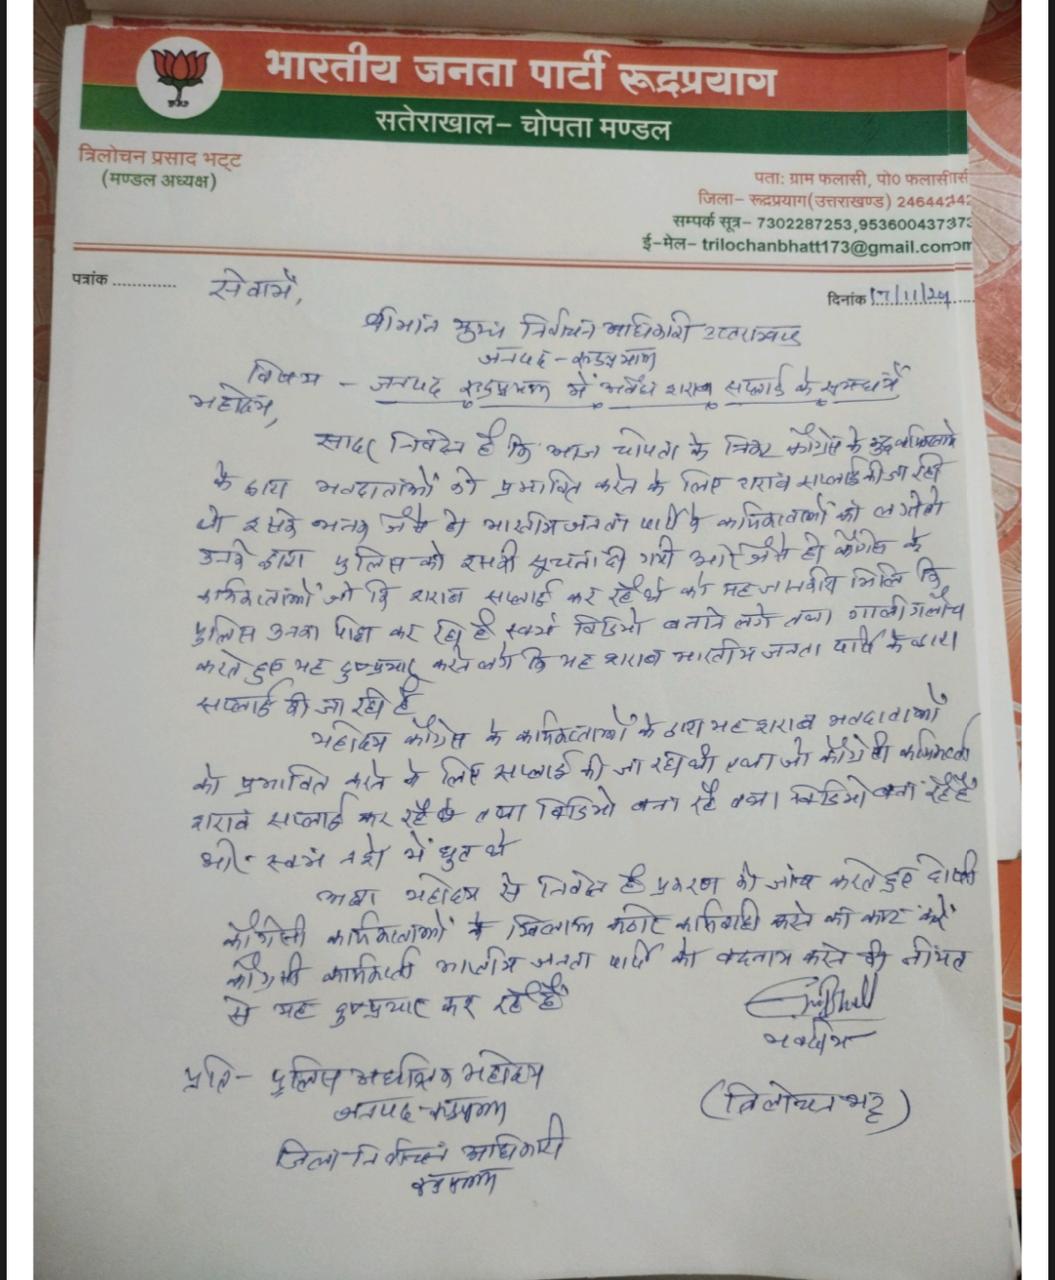 भारतीय जनता पार्टी रूद्रप्रयाग
सतेराखाल- चोपता मण्डल
त्रिलोचन प्रसाद भट्ट
(मण्डल अध्यक्ष)
पता: ग्राम फलासी, पो० फलासी
जिला- रूद्रप्रयाग(उत्तराखण्ड) 246442
सम्पर्क सूत्र- 7302287253,9536004373
ई-मेल- trilochanbhatt173@gmail.com
पत्रांक ............. दिनांक 17/11/24
सेवामें,
श्रीमान मुख्य निर्वाचन अधिकारी उत्तराखण्ड
जनपद - रूद्रप्रयाग
विषय - जनपद रूद्रप्रयाग में अवैध शराब सप्लाई के सम्बन्ध में
महोदय,
सादर निवेदन है कि आज चोपता के निकट काँग्रेस के कुछ कार्यकर्ताओं
के द्वारा मतदाताओं को प्रभावित करने के लिए शराब सप्लाई की जा रही
थी इसके भनक जैसे ही भारतीय जनता पार्टी के कार्यकर्ताओं को लगी तो
उनके द्वारा पुलिस को इसकी सूचना दी गयी और जैसे ही काँग्रेस के
कार्यकर्ताओं जो कि शराब सप्लाई कर रहे थे को यह जानकारी मिलि कि
पुलिस उनका पीछा कर रही है स्वयं विडियो बनाने लगे तथा गाली गलौच
करते हुए यह दुष्प्रचार करने लगे कि यह शराब भारतीय जनता पार्टी के द्वारा
सप्लाई की जा रही है
महोदय काँग्रेस के कार्यकर्ताओं के द्वारा यह शराब मतदाताओं
को प्रभावित करने के लिए सप्लाई की जा रही थी तथा जो काँग्रेसी कार्यकर्ता
शराब सप्लाई कर रहे थे तथा विडियो बना रहे तथा विडियो बना रहे हैं
और स्वयं नशे में धुत थे
अतः महोदय से निवेदन है प्रकरण की जांच करते हुए दोषी
काँग्रेसी कार्यकर्ताओं के खिलाफ कठोर कार्यवाही करने की कष्ट करें
काँग्रेसी कार्यकर्ता भारतीय जनता पार्टी को बदनाम करने की नीयत
से यह दुष्प्रचार कर रहे हैं
भवदीय
प्रति- पुलिस अधीक्षक महोदय
जनपद - रूद्रप्रयाग
(त्रिलोचन भट्ट)
जिला निर्वाचन अधिकारी
रूद्रप्रयाग